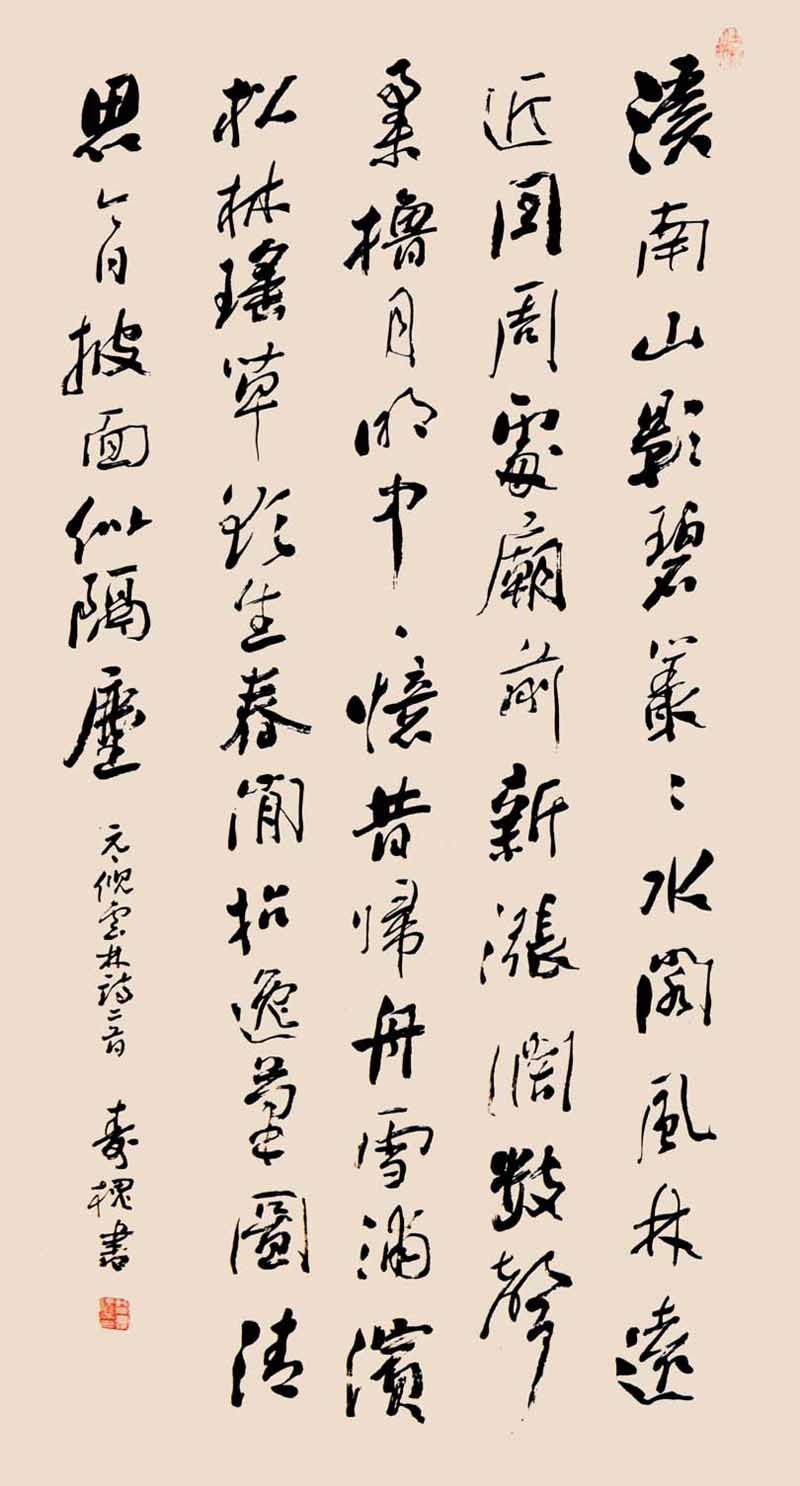 溪南山影碧叢〻水閣風林遠
近同周處廟前新漲闊數聲
柔櫓月明中、憶昔歸舟雪浦濱
松林瑤草欲生春閒拈逸筆圖清
思今日披面似隔塵
元倪雲林詩二首
壽槐書